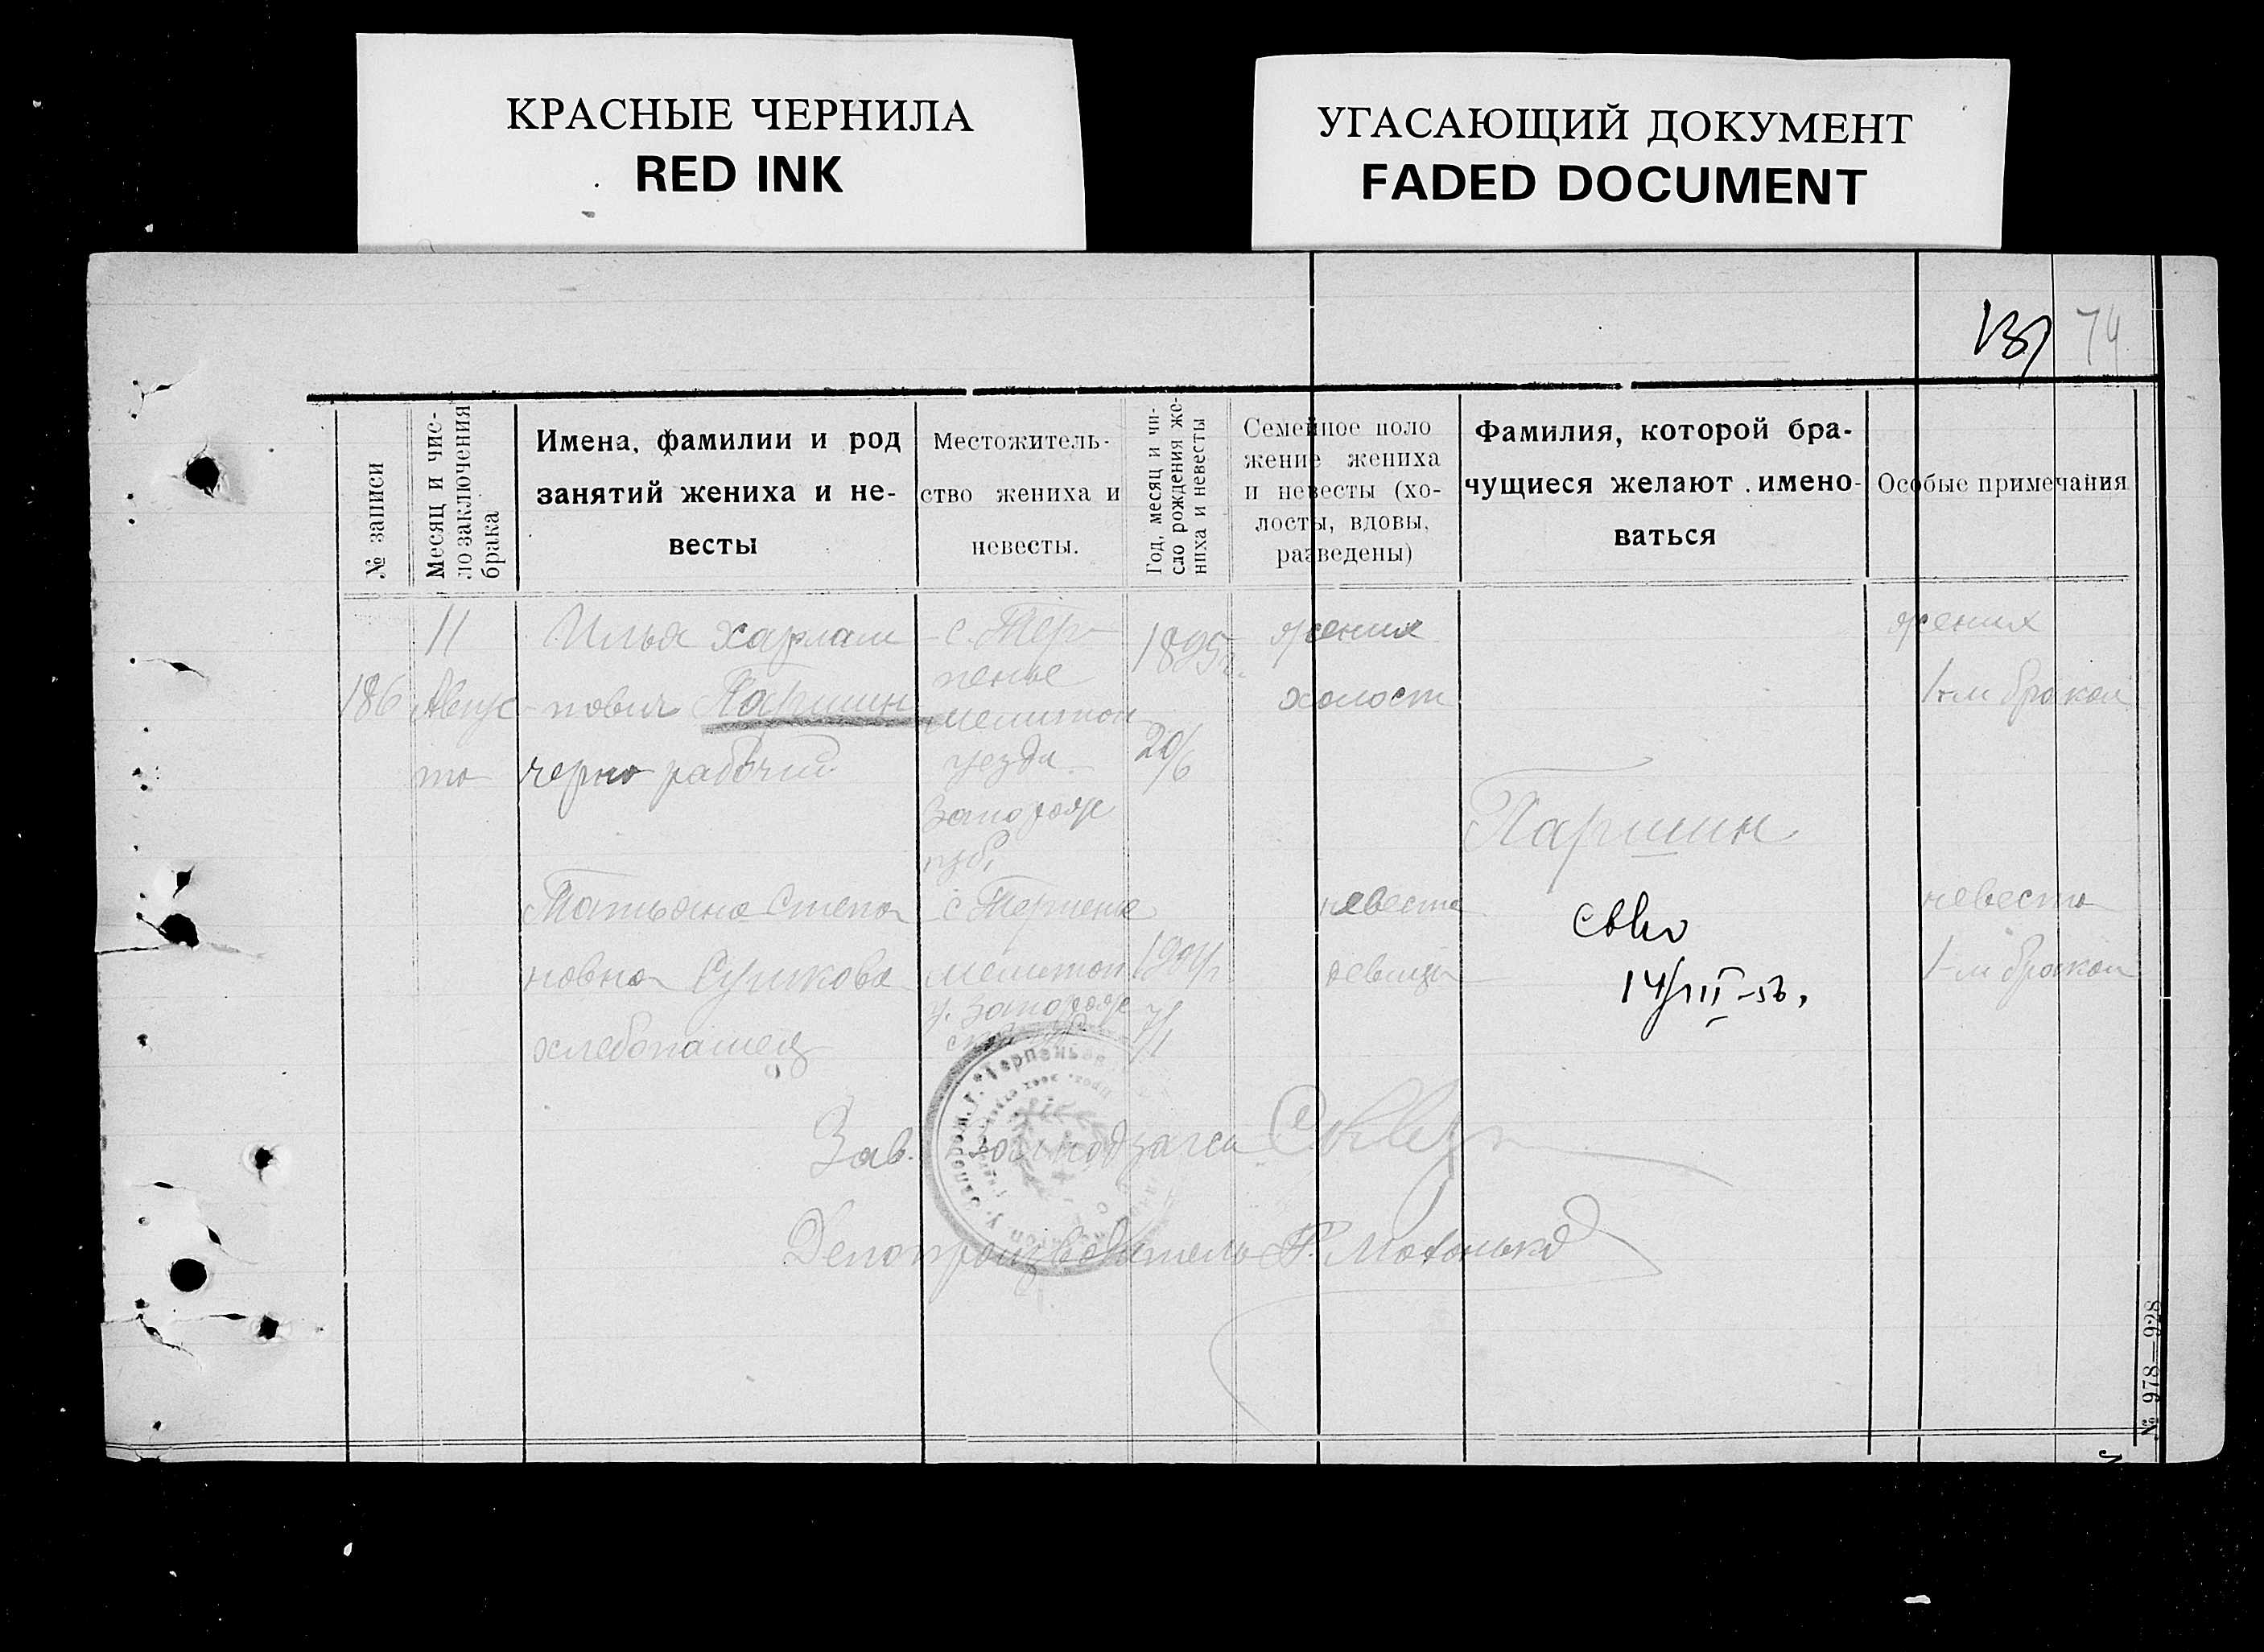 КРАСНЫЕ ЧЕРНИЛА
RED INK
УГАСАЮЩИЙ ДОКУМЕНТ
FADED DOCUMENT
74
№ записи
Месяц и чис-
ло заключения
брака
Имена, фамилии и род
занятий жениха и не-
весты
Местожитель-
ство жениха и
невесты.
Год, месяц и чи-
сло рождения же-
ниха и невесты
Семейное поло
жение жениха
и невесты (хо-
лосты, вдовы,
разведены)
Фамилия, которой бра-
чущиеся желают имено-
ваться
Особые примечания
186
11
Авгус
та
Илья Харлам
пович Паршин
чернорабочий
с. Тер
пенье
мелитоп
уезда
Запорож
губ.
1895г.
20/6
жених
холост
Паршин
жених
1-м браком
Татьяна Степа
новна Сушкова
хлебопашец
с Терпенье
мелитоп
у. Запорож
1904г.
7/1
невеста
девица
невеста
1-м браком
14/III-56.
Зав. загса
Делопроизводитель
№ 978—928